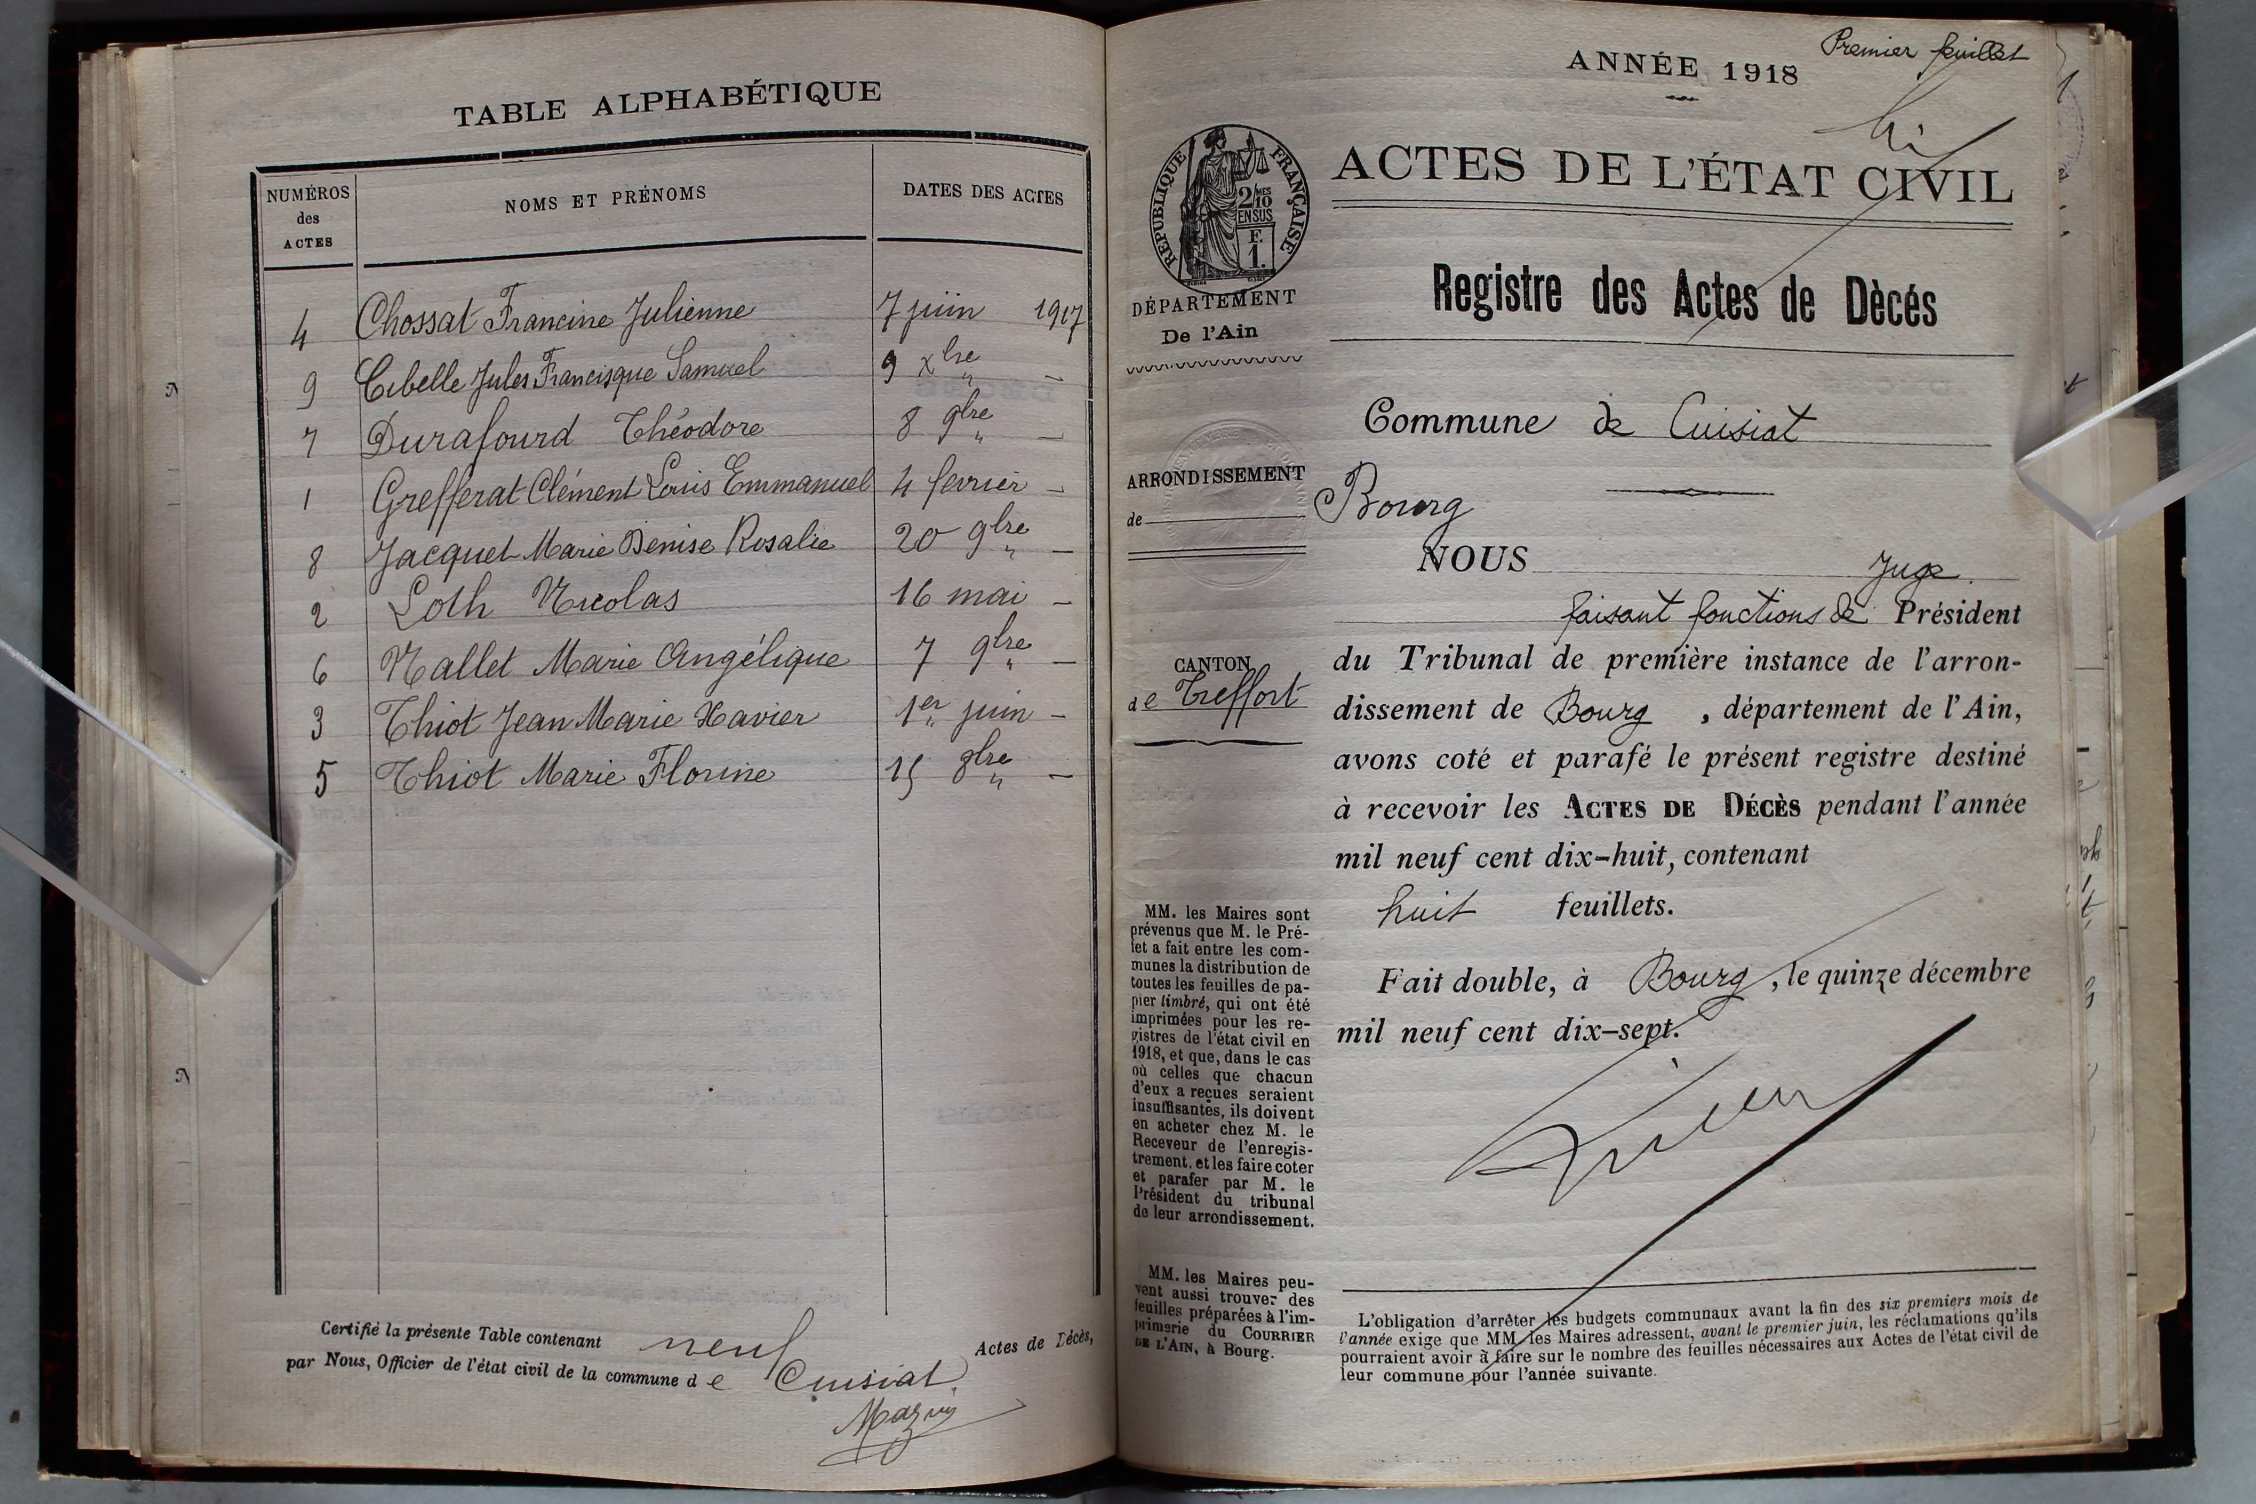 TABLE ALPHABÉTIQUE
NUMÉROS des ACTES | NOMS ET PRÉNOMS | DATES DES ACTES
4 Chossat Francine Julienne 7 juin 1917
9 Cibelle Jules Francisque Samuel 9 xbre " —
7 Durafourd Théodore 8 9bre " —
1 Grefferat Clément Louis Emmanuel 4 fevrier —
8 Jacquet Marie Denise Rosalie 20 9bre " —
2 Loth Nicolas 16 mai —
6 Nallet Marie Angélique 7 9bre " —
3 Thiot Jean Marie Xavier 1er " juin —
5 Thiot Marie Florine 15 8bre " —
Certifié la présente Table contenant neuf Actes de Décès,
par Nous, Officier de l'état civil de la commune de Cuisiat
Premier feuillet
ANNÉE 1918
ACTES DE L'ÉTAT CIVIL
Registre des Actes de Dècés
RÉPUBLIQUE FRANÇAISE
2/10 MES
EN SUS
F.
1.
DÉPARTEMENT
De l'Ain
ARRONDISSEMENT
de Bourg
CANTON
de Treffort
MM. les Maires sont
prévenus que M. le Pré-
fet a fait entre les com-
munes la distribution de
toutes les feuilles de pa-
pier timbré, qui ont été
imprimées pour les re-
gistres de l'état civil en
1918, et que, dans le cas
où celles que chacun
d'eux a reçues seraient
insuffisantes, ils doivent
en acheter chez M. le
Receveur de l'enregis-
trement, et les faire coter
et parafer par M. le
Président du tribunal
de leur arrondissement.
MM. les Maires peu-
vent aussi trouver des
feuilles préparées à l'im-
primerie du COURRIER
DE L'AIN, à Bourg.
Commune de Cuisiat
NOUS Juge
faisant fonctions de Président
du Tribunal de première instance de l'arron-
dissement de Bourg, département de l'Ain,
avons coté et parafé le présent registre destiné
à recevoir les ACTES DE DÉCÈS pendant l'année
mil neuf cent dix-huit, contenant
huit feuillets.
Fait double, à Bourg, le quinze décembre
mil neuf cent dix-sept.
L'obligation d'arrêter les budgets communaux avant la fin des six premiers mois de
l'année exige que MM. les Maires adressent, avant le premier juin, les réclamations qu'ils
pourraient avoir à faire sur le nombre des feuilles nécessaires aux Actes de l'état civil de
leur commune pour l'année suivante.